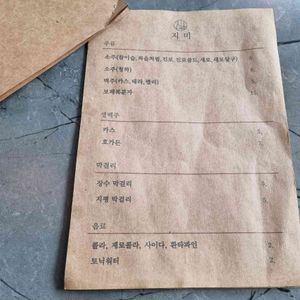 지미
주류
소주(참이슬, 처음처럼, 진로, 진로골드, 새로, 새로살구)
소주(청하)
맥주(카스, 테라, 켈리)
보해복분자
생맥주
카스 5,
호가든
막걸리
장수 막걸리 5,
지평 막걸리 5,
음료
콜라, 제로콜라, 사이다, 환타파인 2,
토닉워터 2,